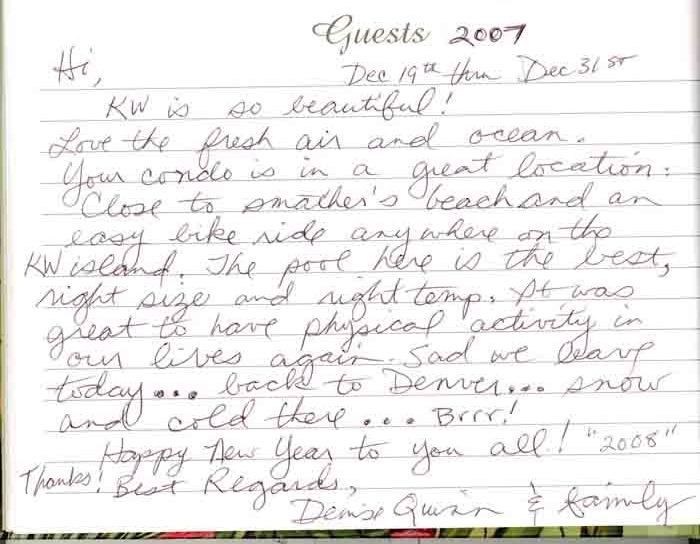 Guests 2007
Hi,
Dec 19th thru Dec 31st
KW is so beautiful!
Love the fresh air and ocean.
Your condo is in a great location:
Close to smather's beach and an
easy bike ride anywhere on the
KW island. The pool here is the best,
right size and right temp. It was
great to have physical activity in
our lives again. Sad we leave
today... back to Denver... snow
and cold there... Brrr!
Happy New Year to you all! "2008"
Thanks! Best Regards,
Denise Quinn & family